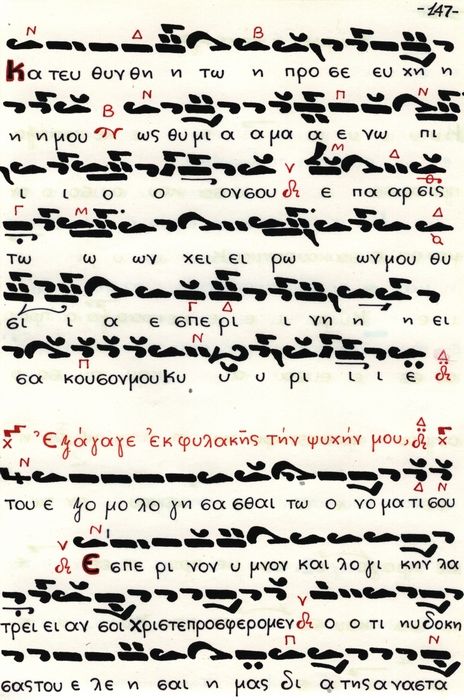 -147-
Κα τευ θυν θη η τω η προ σε ευ χη η
η η μου ως θυ μι α α μα α ε νω πι
ι ι ο ο ον σου ε πα αρ σις
τω ω ων χει ει ρω ων μου θυ
σι ι α ε σπε ρι ι νη η η ει
σα κου σον μου Κυ υ υ ρι ι ι ε
Ἐξάγαγε ἐκ φυλακῆς τὴν ψυχήν μου,
του ε ξο μο λο γη σα σθαι τω ο νο μα τι σου
Ε σπε ρι νον υ μνον και λο γι κην λα
τρει ει αν σοι χριστε προσφερομεν ο ο τι ηυ δοκη
σας του ε λε η σαι η μας δι α της α να στα